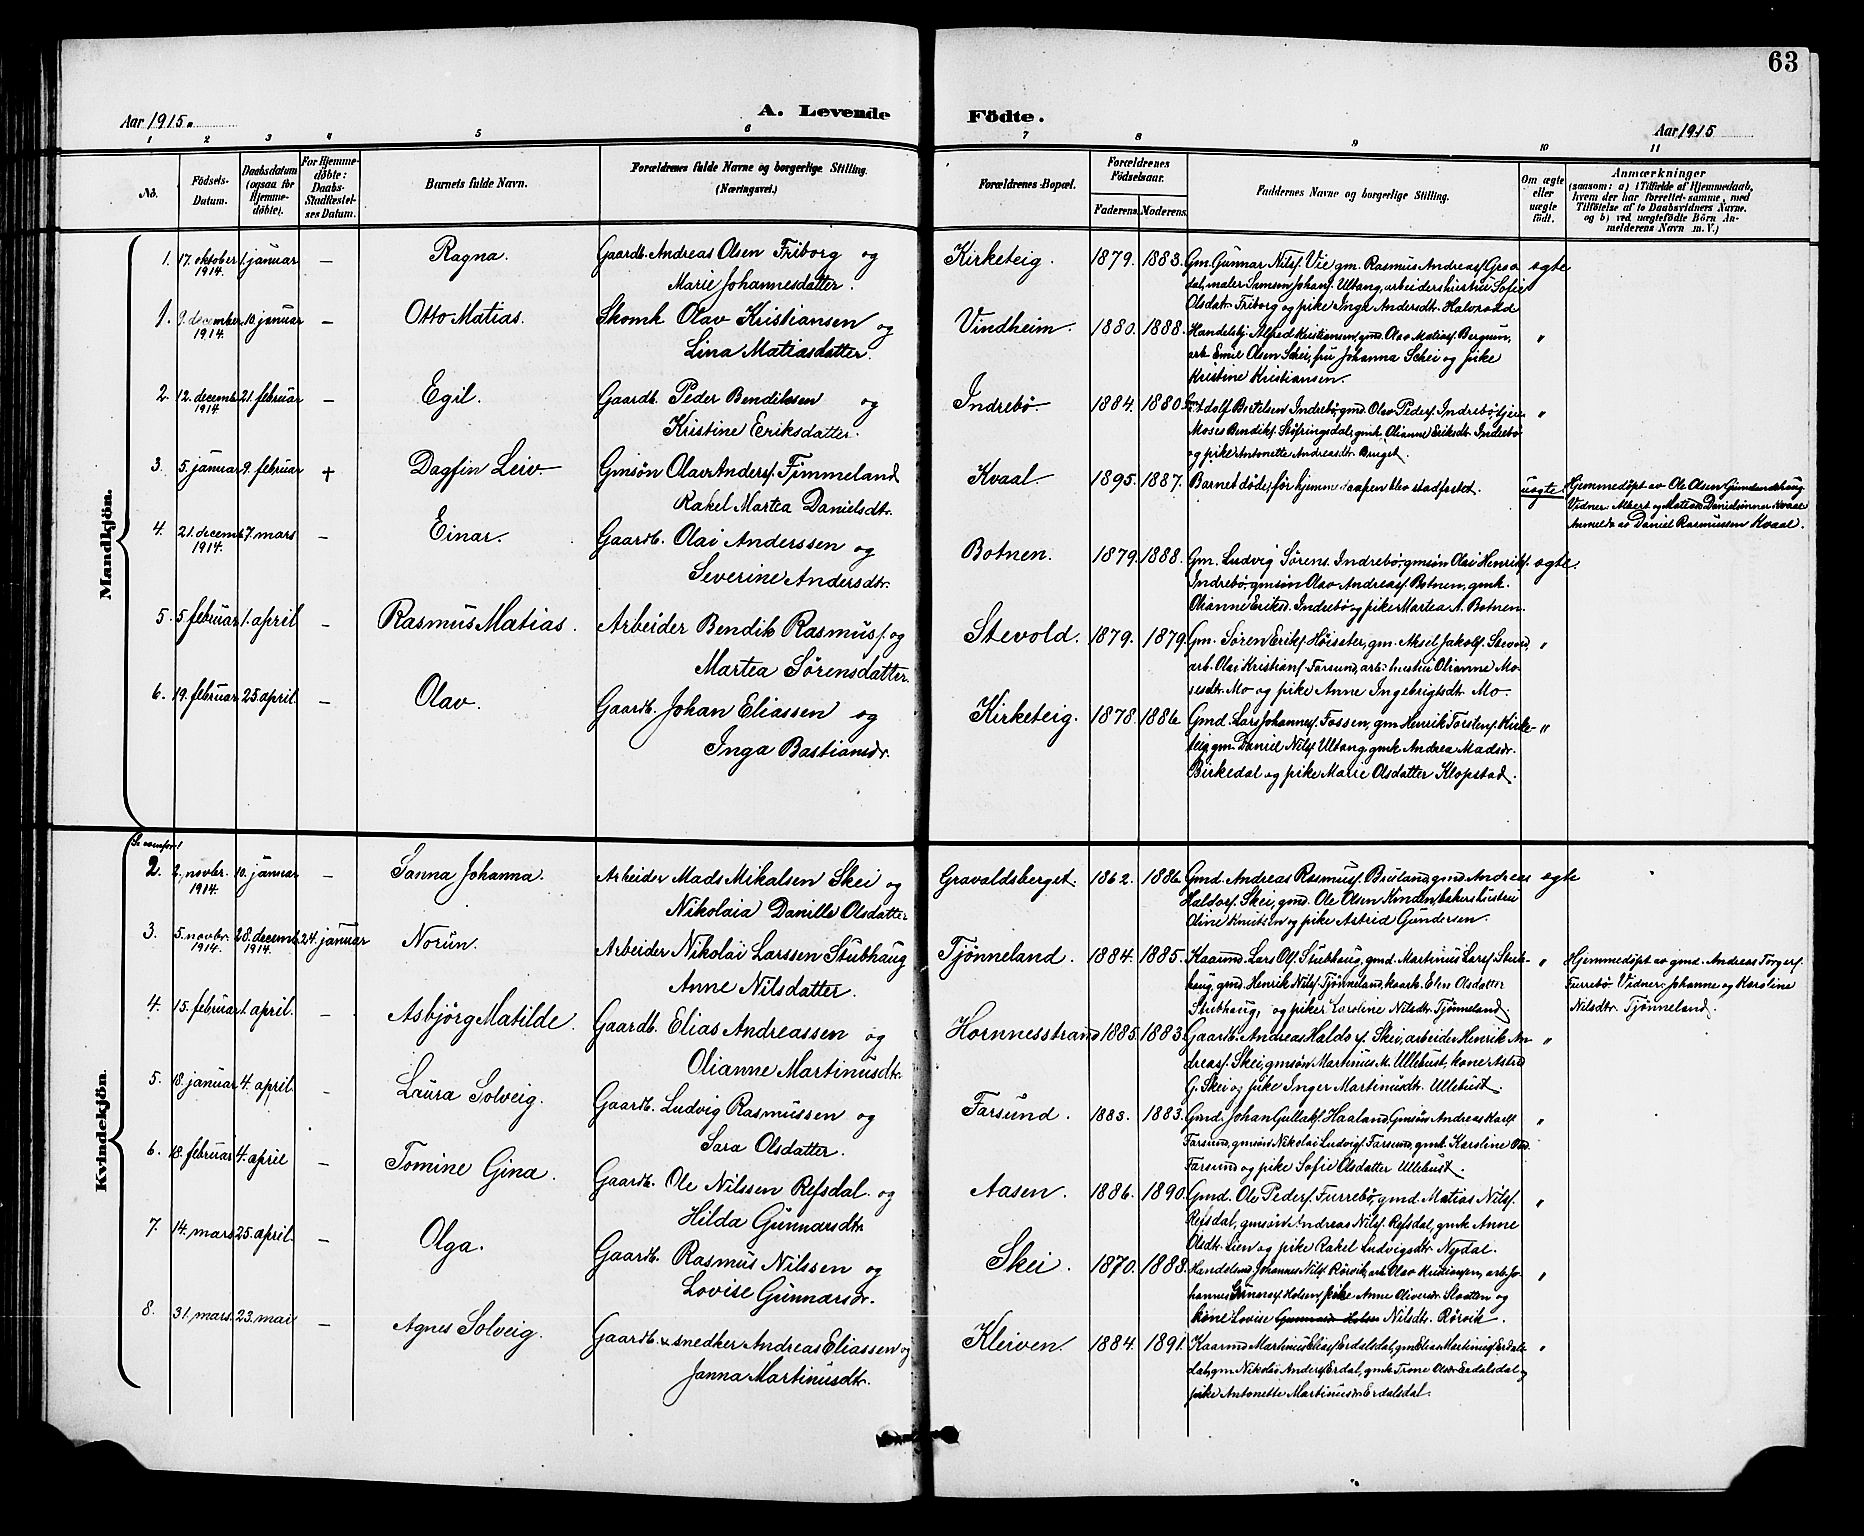 63
Aar 1915.
A. Levende Födte.
Aar 1915
1 2 3 4 5 6 7 8 9 10 11
No.
Födsels-Datum.
Daabsdatum (ogsaa for Hjemmedöbte).
For Hjemmedöbte: Daabs-Stadfæstelses Datum.
Barnets fulde Navn.
Forældrenes fulde Navne og borgerlige Stilling. (Næringsvei.)
Forældrenes Bopæl.
Forældrenes Födselsaar.
Faderens. Moderens.
Faddernes Navne og borgerlige Stilling.
Om ægte eller uægte født.
Anmærkninger
(saasom: a) i Tilfælde af Hjemmedaab, hvem der har forrettet samme, med Tilföielse af to Daabsvidners Navne, og b) ved uægtefödte Börn Anmelderens Navn m. V.)
Mandkjön.
1. 17. oktober 1914. 1. januar – Ragna. Gaardb. Andreas Olsen Friborg og
Marie Johannesdatter. Kirketeig. 1879. 1883. Gm. Gunnar Nilsf. Vie, gm. Rasmus Andreasf. Groadal, maler Samson Johanf. Ultang, arbeiderhustru Sofie
Olsdat. Friborg og pike Inga Andersdt. ægte
1. 9. december 1914. 10. januar – Otto Matias. Skomk Olav Kristiansen og
Lina Matiasdatter. Vindheim. 1880. 1888. Handelsbj. Alfred Kristiansen, gmd. Olav Matiasf. Bergum,
arb. Emil Olsen Skei, fru Johanna Skei og pike
Kristine Kristiansen. "
2. 12. decemb 1914 21. februar – Egil. Gaardb. Peder Bendiksen og
Kristine Eriksdatter. Indrebö. 1884. 1880. Adolf Indrebö, gmd. Olav Pedersf. Indrebö,
Moses Bendikf. Stöfringsdal, gmk. Olianne Eriksdt. Indrebö
og pike Antonette Andreasdt. "
3. 5. januar 9. februar + Dagfin Leiv Gmsön Olav Andersf. Timmeland
Rakel Martea Danielsdtr. Kvaal. 1895. 1887. Barnet døde før hjemmedaapen blev stadfestet. uægte. Hjemmedöpt av Ole Olsen
Vidner: Albert og Matias Kvaal
Anmeldt av Daniel Rasmussen Kvaal.
4. 21. decemb 1914. 7. mars – Einar. Gaardb. Olai Anderssen og
Severine Andersdtr. Botnen. 1879. 1888. Gm. Ludvig Sörens. Indrebö, gmsön Olai Henrikf.
Indrebö, gmsön Olav Andreasf. Botnen, gmk.
Olianne Eriksd. Indrebö og pike Martea A. Botnen. ægte.
5. 5. februar 1. april – Rasmus Matias. Arbeider Bendik Rasmusf. og
Martea Sörensdatter. Stevold. 1879. 1879. Gm. Sören Eriksf. Höisæter, gm. Aksel Jakobf. Stevold,
arb. Olai Kristianf. Farsund, arb. hustru Olianne Mosesdt. Mo og pike Anne Ingebrigtsdt. Mo. "
6. 19. februar 25. april. – Olav. Gaardb. Johan Eliassen og
Inga Bastiansdr. Kirketeig. 1878. 1886 Gmd. Lars Johannesf. Fossen, gm Henrik Torstenf. Kirketeig, gm. Daniel Nilsf Ultang, gmk Andrea Madsdr.
Birkedal og pike Marie Olsdatter Klopstad. "
Kvindekjön.
2. 2. novbr. 1914. 10. januar – Sanna Johanna. Arbeider Mads Mikalsen Skei og
Nikolaia Danille Olsdatter Gravaldsberget. 1862. 1886. Gmd. Andreas Rasmusf. Bruland, gmd Andreas
Haldorf. Skei, gmd. Ole Olsen Kinden, bakers hustru
Oline Knutsen og pike Astrid Gundersen. ægte
3. 5. novbr. 1914. 28. decemb. 1914. 24. januar Norun. Arbeider Nikolai Larssen Stubhaug
Anne Nilsdatter. Tjönneland. 1884. 1885. Kaarmd. Lars Olf. Stubhaug, gmd. Martinus Larsf. Stubhaug, gmd. Henrik Nilsf. Tjönneland, kaark. Elen Olsdatter
Stubhaug, og pike Karoline Nilsdtr. Tjönneland. " Hjemmedöpt av gmd. Andreas Torgerf.
Furrebö Vidner: Johanne og Karoline
Nilsdtr Tjönneland.
4. 15. februar 1 april. – Asbjörg Matilde. Gaardb. Elias Andreassen og
Olianne Martinusdtr. Hornnesstrand 1885. 1883. Gaardb. Andreas Haldorf. Skei, arbeider Henrik Andreasf. Skei, gmsön Martinus M. Ullebust, kone Astrid
G. Skei og pike Inger Martinusdt. Ullebust. "
5. 18. januar 4. april. – Laura Solveig. Gaardb. Ludvig Rasmussen og
Sara Olsdatter. Farsund. 1883. 1883. Gmd. Johan Gullakf. Haaland, Gmsön Andreas Karlf
Farsund, gmsön Nikolai Ludvigf. Farsund, gmk. Karoline
Farsund og pike Sofie Olsdatter Ullebust. "
6. 18. februar 4. april – Tomine Gina. Gaardb. Ole Nilssen Refsdal. og
Hilda Gunnarsdtr. Aasen. 1886. 1890. Gmd. Ole Pedersf. Furrebö, gmd. Matias Nilsf.
Refsdal, gmsön Andreas Nilsf. Refsdal, gmk Anne
Olsdtr. Lien og pike Rakel Ludvigsdtr Nydal. "
7. 14. mars 25. april. – Olga. Gaardb. Rasmus Nilssen og
Lovise Gunnarsdr. Skei. 1870. 1888. Handelsmd Johannes Nilsf. Rörvik, arb. Olav Kristiansen, arb. Johannes Gunnarsf Holsen, pike Anne Oliversdr. Slaatten og
kone Lovise Nilsdt. Rörvik. "
8. 31. mars. 23. mai – Agnes Solveig. Gaardb. & snedker Andreas Eliassen og
Janna Martinusdtr. Kleiven. 1884. 1891. Kaarmd Martinus Eliasf Erdalsdal, gm Elias Martinusf Erdalsdal, gm. Nikolai Andersf Erdal, gmk. Trone Olsdr Erdalsdal og
pike Antonette Martinusdr Erdalsdal. "